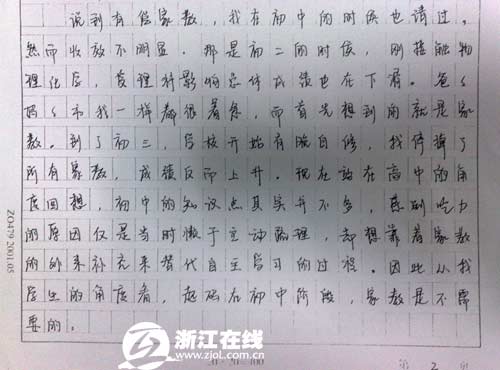 说到有偿家教，我在初中的时候也请过，
然而收效不明显。那是初二的时候，刚接触物
理化后，受理科影响总体成绩也在下滑。爸爸
妈妈和我一样都很着急，而首先想到的就是家
教。到了初三，学校开始有晚自修，我停掉了
所有家教，成绩反而上升。现在站在高中的角
度回想，初中的知识点其实并不多，感到吃力
的原因仅是当时懒于主动梳理，却想靠着家教
的外来补充来替代自主学习的过程。因此从我
学生的角度看，起码在初中阶段，家教是不需
要的。
ZO479 2001.05
浙江在线
www.zjol.com.cn
第 2 页